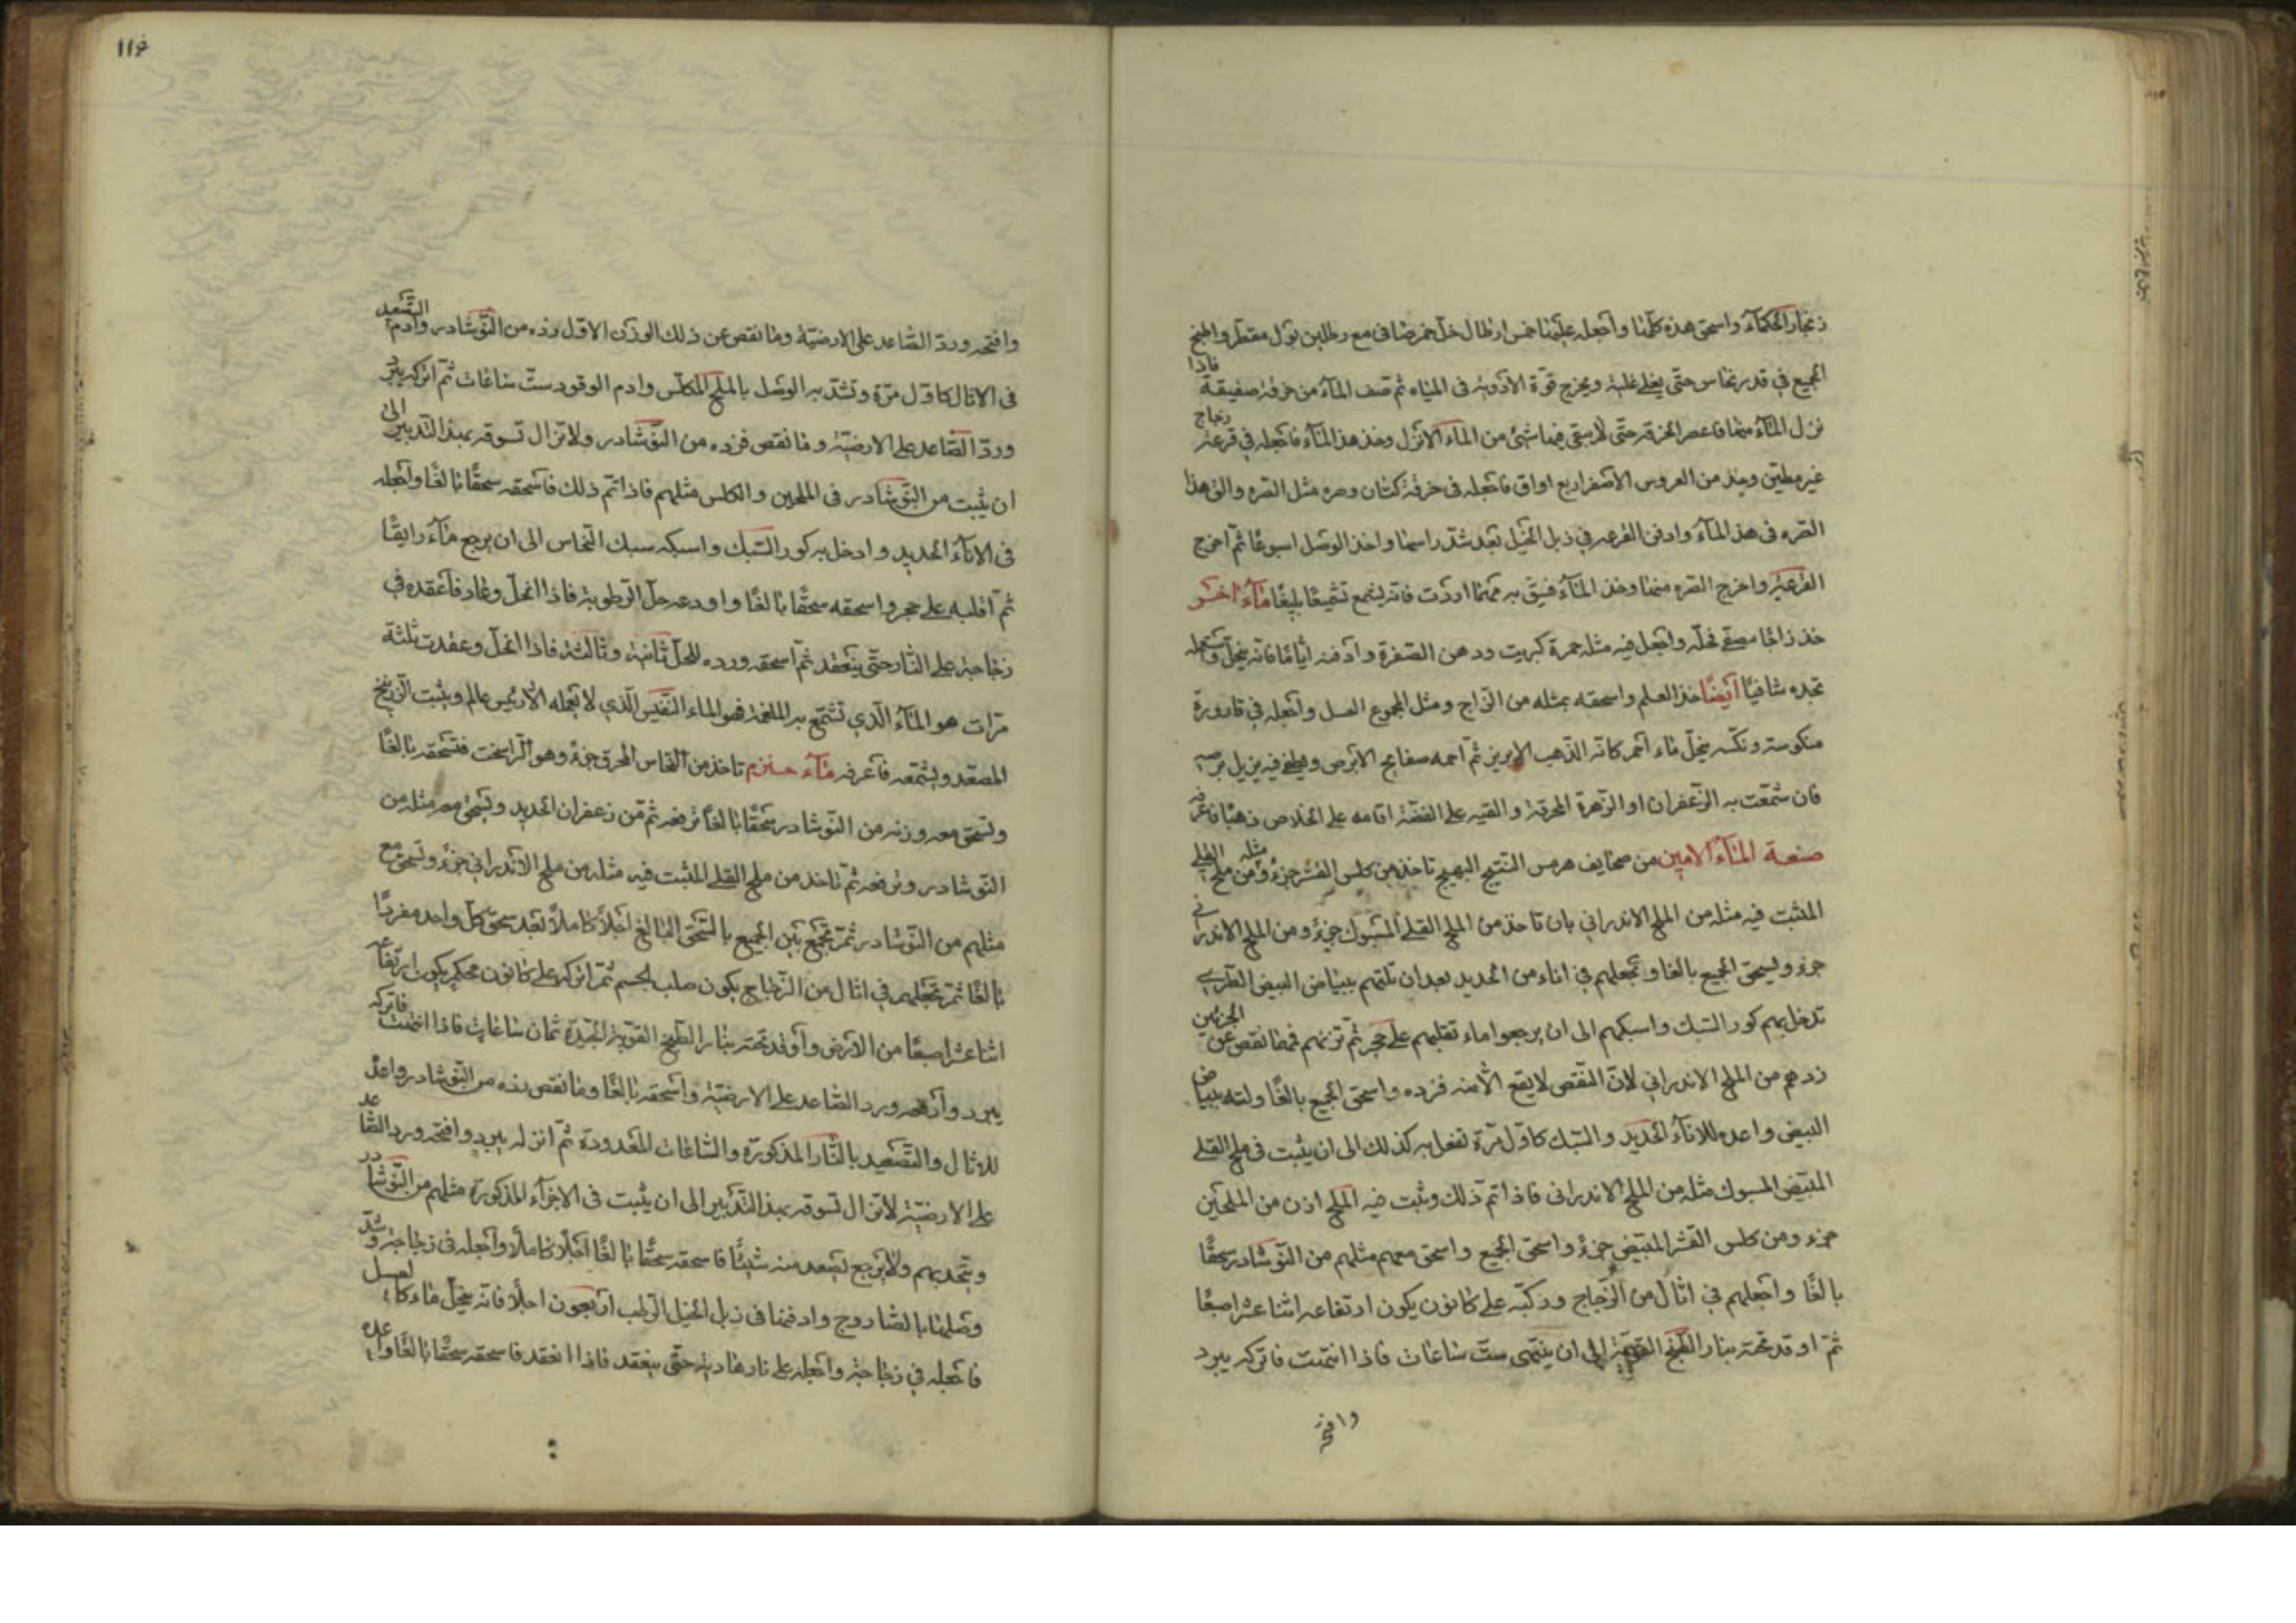 زنجار الحكماء واسحق هذه كلها واجعله عليها خمس ارطال خل خمر صافى مع رطلين بول مقطر واطبخ
الجميع في قدر نحاس حتى يغلى غلية ويخرج قوة الادوية فى المياه ثم تصف الماء من خرقة صفيقة فاذا
نزل الماء منها فاعصر الخرقة حتى لا يبقى فيها شئ من الماء الا نزل وخذ هذ الماء فاجعله في قرعة زجاج
غير مطين وخذ من العروس الاصفر اربع اواق فاجعله فى خرقة كتان وصره مثل الصره والق هذا
الصره فى هذ الماء وادفن القرعه في ذبل الخيل بعد شد راسها واخذ الوصل اسبوعًا ثم اخرج
القرعة واخرج الصره منها وخذ المآء فيق به مهما اردت فانه يشمع تشميعًا بليغًا ماء اخر
خذ زاجًا مصفى فحله واجعل فيه مثله حمرة كبريت ودهن الصفرة وادفنه اياما فانه ينحل واستعمله
تجده شافيًا ايضًا خذ العلم واسحقه بمثله من الزاج ومثل المجموع العسل واجعله في قارورة
منكوسة ونكسه ينحل ماء احمر كانه الذهب الابريز ثم احمه صفايح الابرص ويطفى فيه يزيل برصه
فان شمعت به الزعفران او الزهرة المحرقة والقيه على الفضة اقامه على الخلاص ذهبًا فاعرفه
صنعة المآء الامين من صحايف هرمس النتيج البهيج تاخذ من كلس القشر جزء ومن ملح القلى مثله
المثبت فيه مثله من الملح الاندرانى بان تاخذ من الملح القلى المسبوك جزء ومن الملح الاندرانى
جزء ويسحق الجميع بالغا وتجعلهم في اناء من الحديد بعد ان تلتهم ببياض البيض الطرى
تدخل بهم كور السبك واسبكهم الى ان يرجعوا ماء تقلبهم على حجر ثم توزنهم فمهما نقص عن الجزئين
زدهم من الملح الاندرانى لان النقص لا يقع الا منه فزده واسحق الجميع بالغًا ولته ببياض
البيض واعده للاناء الحديد والسبك كاول مرة تفعل به كذلك الى ان يثبت فى ملح القلى
المبيض المسبوك مثله من الملح الاندرانى فاذا تم ذلك وثبت فيه الملح اذن من الملحين
جزء ومن كلس القشر المبيض جزء واسحق الجميع واسحق معهم مثلهم من النوشادر سحقًا
بالغًا واجعلهم في اثال من الزجاج وركبه على كانون يكون ارتفاعه اثنا عشر اصبعًا
ثم اوقد تحته بنار الطبخ القوية الى ان ينتهى ست ساعات فاذا انتهت فاتركه يبرد
وافتحه
١١٤
وافتحه ورد الصاعد على الارضية وما نقص عن ذلك الوزن الاول زده من النوشادر وادم التصعيد
فى الاثال كاول مرة وتشد به الوصل بالملح المكلس وادم الوقود ست ساعات ثم اتركه يبرد
ورد الصاعد على الارضية وما نقص فزده من النوشادر ولا تزال تسوقه بهذ التدبير الى
ان يثبت من النوشادر فى الملحين والكلس مثلهم فاذا تم ذلك فاسحقه سحقًا بالغًا واجعله
فى الاناء الحديد وادخل به كور السبك واسبكه سبك النحاس الى ان يرجع ماء رايقًا
ثم اقلبه على حجر واسحقه سحقًا بالغًا واودعه حل الرطوبة فاذا انحل وعاد فاعقده في
زجاجة على النار حتى ينعقد ثم اسحقه ورده للحل ثانية وثالثة فاذا انحل وعقدت ثلثة
مرات هو الماء الذي تشمع به الملغمة فهو الماء النفيس الذي لا يعمله الا رئيس عالم ويثبت الزرنيخ
المصعد ويشمعه فاعرفه ماء حسن تاخذ من النحاس المحرق جزء وهو الراسخت فتسحقه بالغًا
وتسحق معه وزنه من النوشادر سحقًا بالغًا ترفعه ثم من زعفران الحديد وتسحق معه مثله من
النوشادر وترفعه ثم تاخذ من ملح القلى المثبت فيه مثله من ملح الاندرانى جزء وتسحق مع
مثلهم من النوشادر ثم تجمع بين الجميع بالسحق البالغ اجلا كاملا بعد سحق كل واحد مفردًا
بالغًا ثم تجعلهم في اثال من الزجاج يكون صلب الجسم ثم اتركه على كانون محكم يكون ارتفاعه
اثنا عشر اصبعًا من الارض وأوقد تحته بنار الطبخ القوية الجيدة ثمان ساعات فاذا انتهت فاتركه
يبرد وافتحه ورد الصاعد على الارضية واسحقه بالغًا وما نقص زده من النوشادر واعده
للاثال والتصعيد بالنار المذكورة والساعات المعدودة ثم انزله يبرد وافتحه ورد الصاعد
على الارضية لا تزال تسوقه بهذ التدبير الى ان يثبت فى الاجزاء المذكورة مثلهم من النوشادر
ويتحد بهم ولا يرجع تصعد منه شيئًا فاسحقه سحقًا بالغًا اجلا كاملا واجعله فى زجاجة وشد
وصلها بالصاروج وادفنها فى زبل الخيل الرطب اربعون اجلا فانه ينحل ماء كالعسل
فاجعله في زجاجة واجعله على نار هادية حتى ينعقد فاذا انعقد فاسحقه سحقًا بالغًا واعده